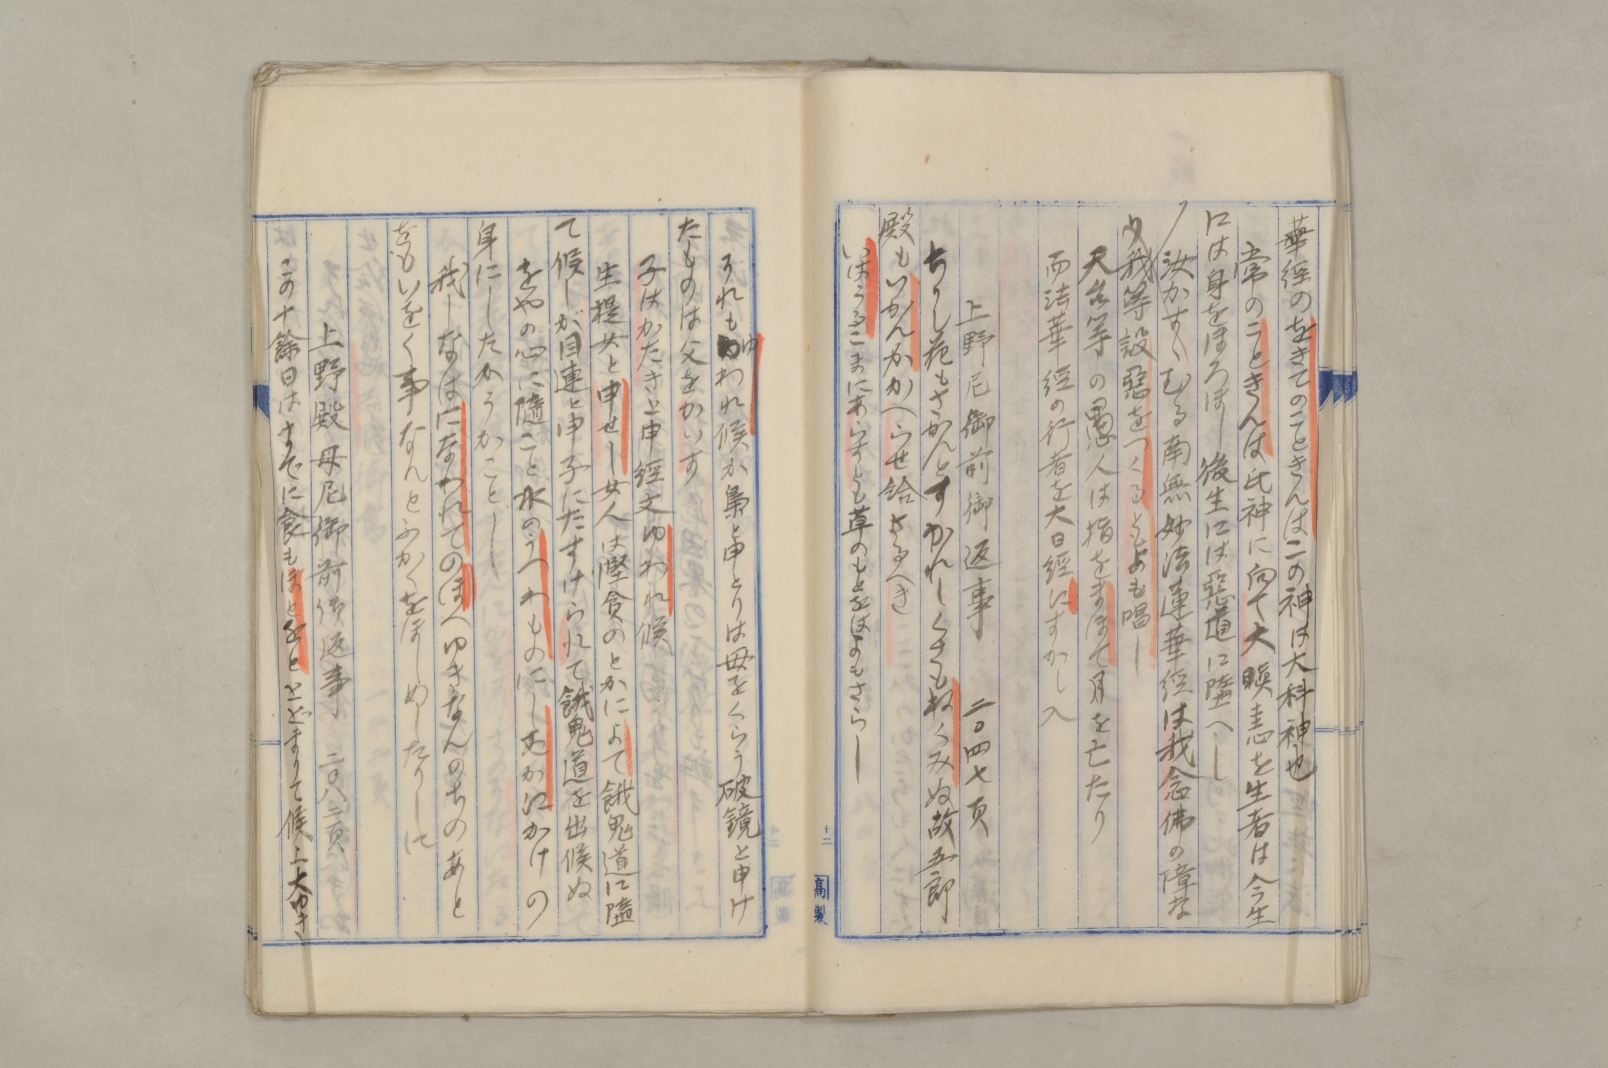 華経のをきてのことさんはこの神は大科神也
常のことさんは氏神に向て大瞋恚を生者は今生
には身をほろほし後生には惡道に墮へし
汝かすくむる南無妙法蓮華經は我念佛の障な
り我等設惡をつくるともよも唱し
天台等の愚人は指をまほて月を亡たり
而法華經の行者を大日經にすかし入
上野尼御前御返事 二〇四七頁
ちりし花もさかんとすかれしくさもねくみぬ故五郎
殿もいかんかかへらせ給さるへき
いはうるこまにあらすとも草のもとをはよもさらし
それもゆわれ候か梟と申とりは母をくらう破鏡と申け
たものは父をかいす
子はかたきと申經文ゆわれ候
生提女と申せし女人は慳貪のとかによて餓鬼道に墮
て候しが目連と申子にたすけられて餓鬼道を出候ぬ
をやの心に隨こと水のうつわものにしたかいかけの
身にしたかうかことし
我しなはになわれてのほへゆきなんのちのあと
をもいをく事なんとふかくをほしめしたりしに
上野殿母尼御前御返事 二〇八二頁
この十餘日はすてに食もほとをととゞまりて候上大ゆき
十二
高製